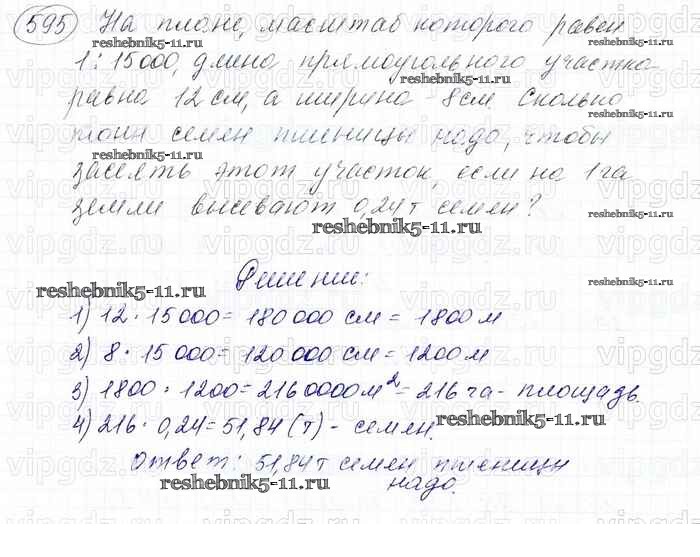 595 На плане, масштаб которого равен
1:15000, длина прямоугольного участка
равна 12 см, а ширина - 8 см. Сколько
тонн семен пшеницы надо, чтобы
засеять этот участок, если на 1 га
земли высевают 0,24 т семен?
Решение:
1) 12 · 15 000 = 180 000 см = 1800 м
2) 8 · 15 000 = 120 000 см = 1200 м
3) 1800 · 1200 = 2160000 м² = 216 га - площадь.
4) 216 · 0,24 = 51,84 (т) - семен.
Ответ: 51,84 т семен пшеницы
надо.
reshebnik5-11.ru
vipgdz.ru